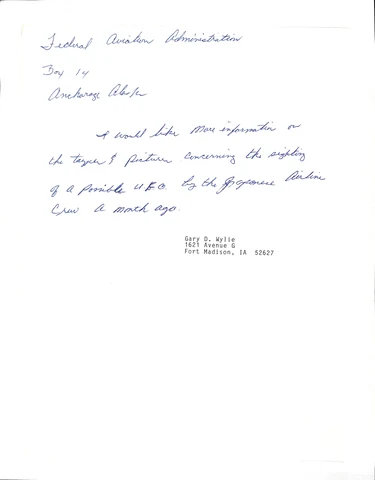 Federal Aviation Administration
Box 14
Anchorage Alaska
I would like more information on
the tapes & pictures concerning the sighting
of a possible U.F.O. by the Japanese Airline
Crew a month ago.
Gary D. Wylie
1621 Avenue G
Fort Madison, IA 52627